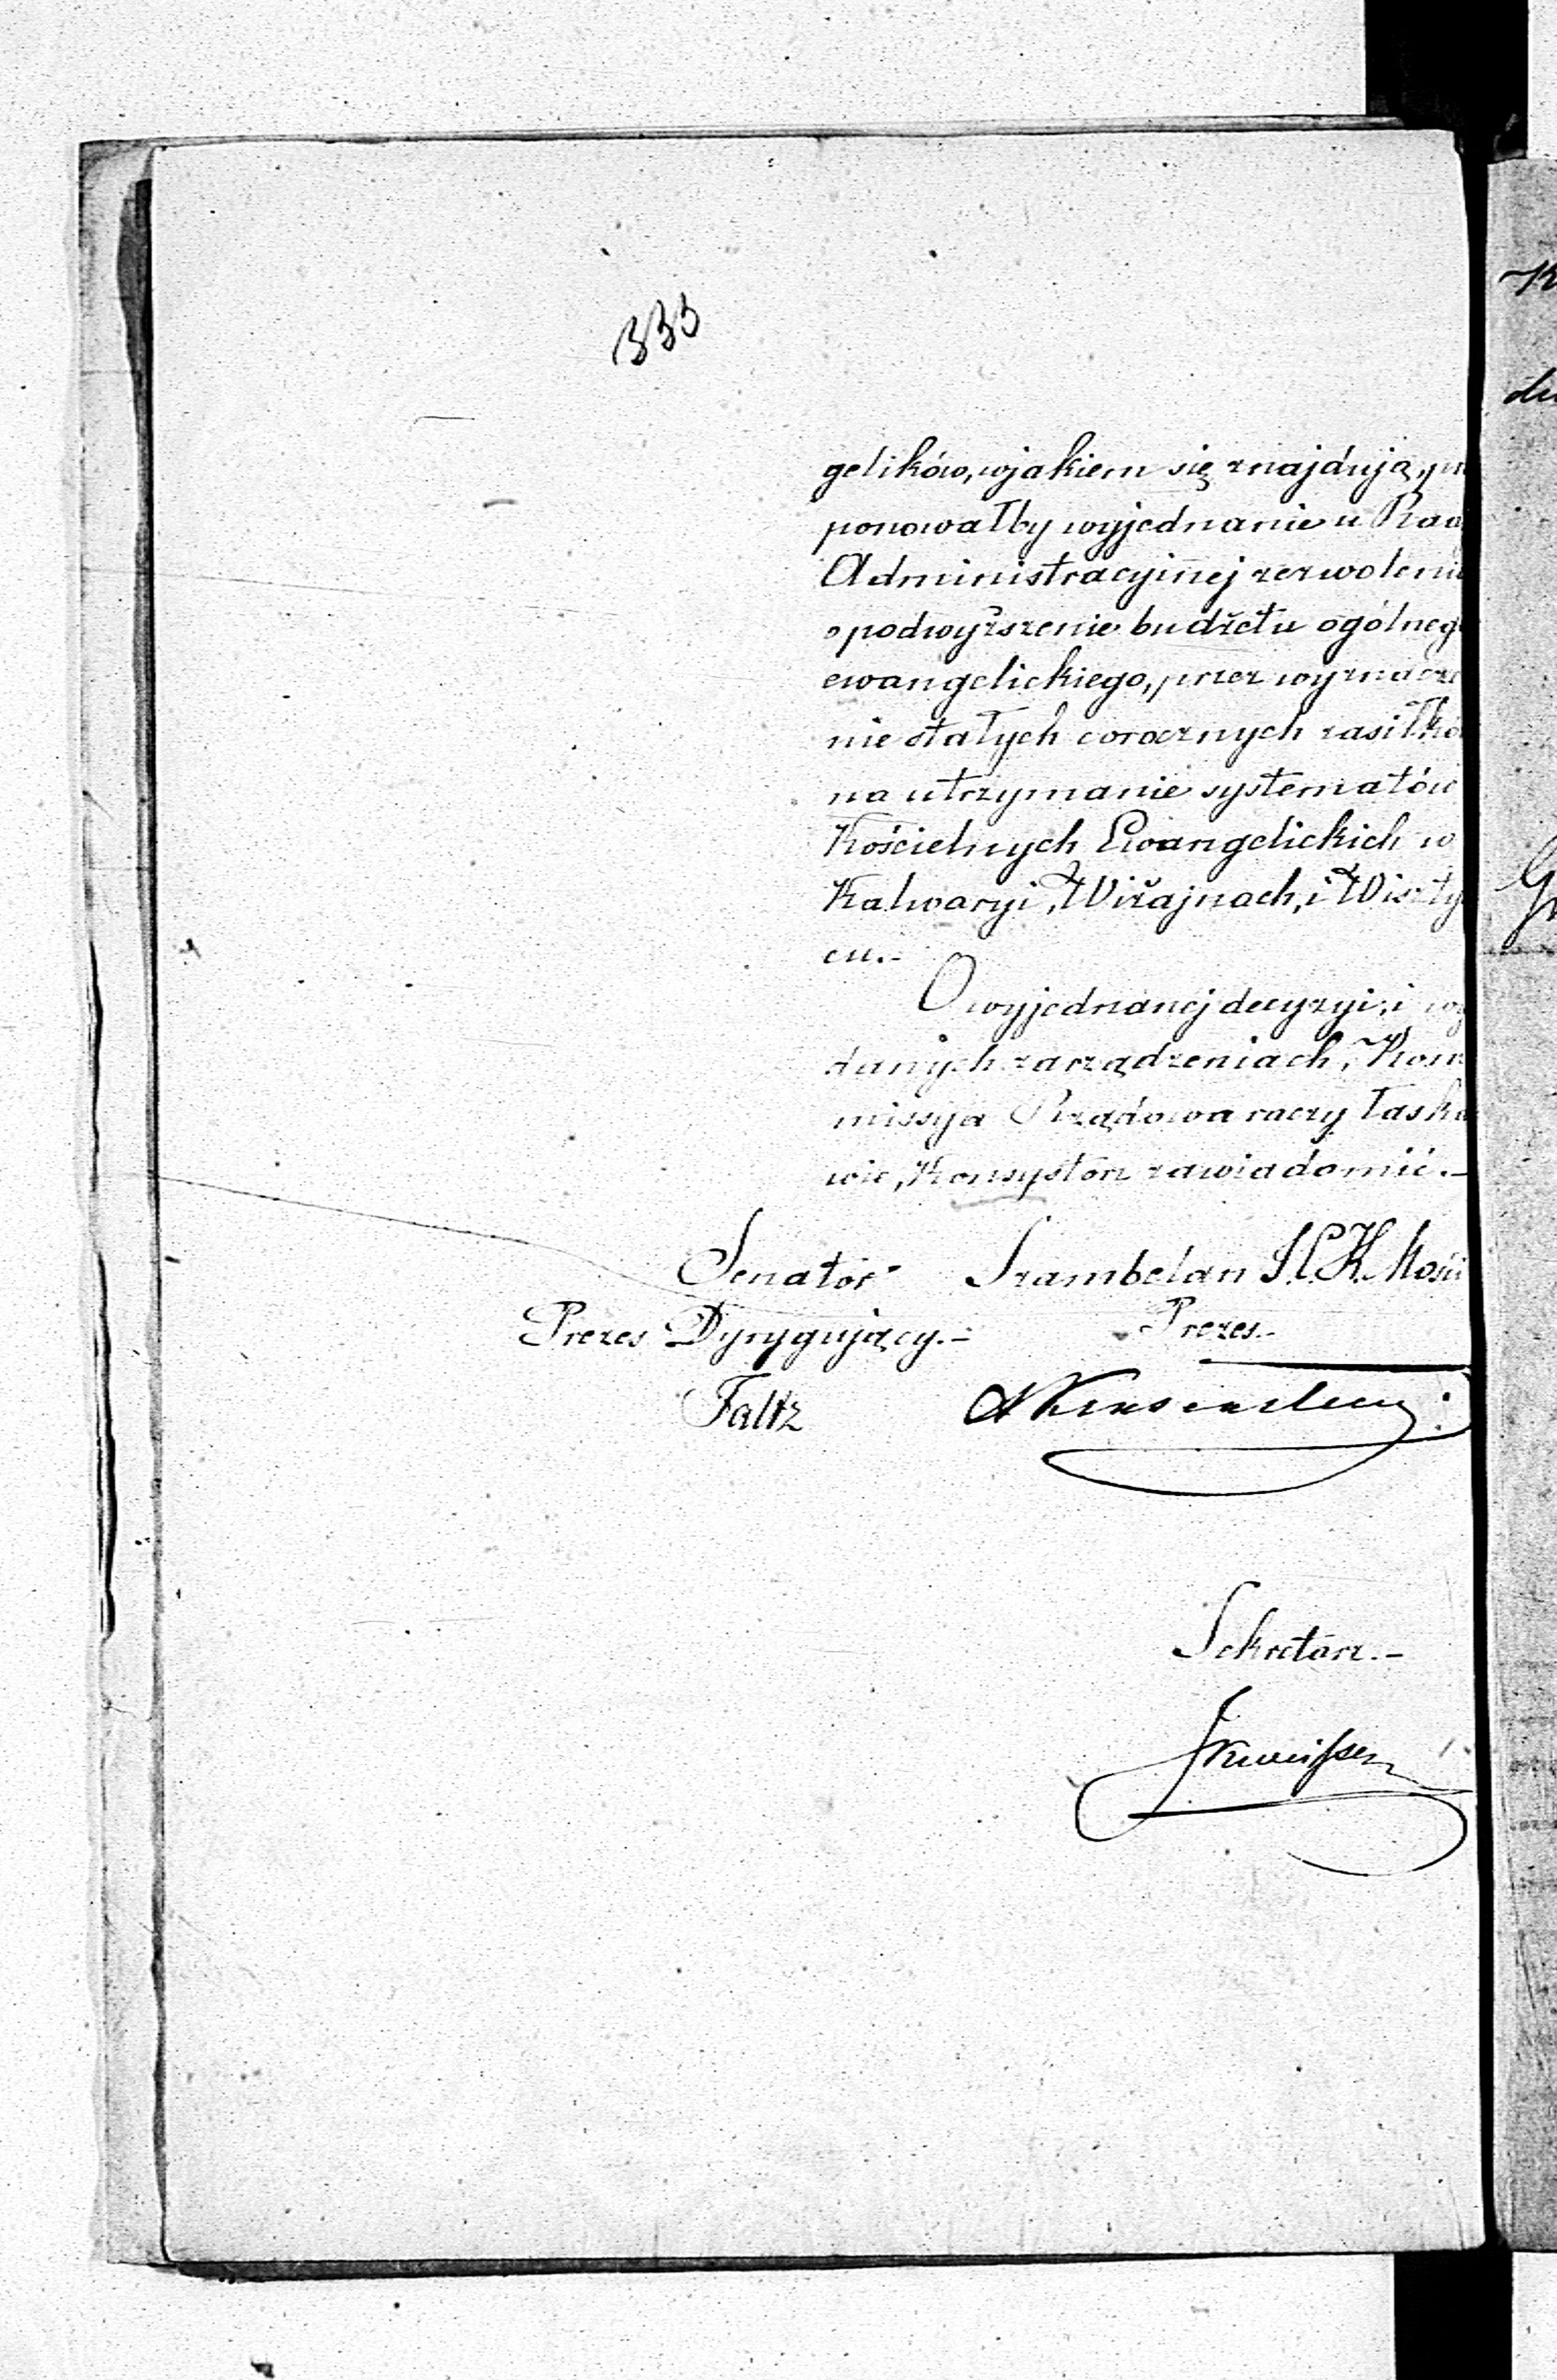 333
gelików, w jakiem się znajdują, pro
ponowałby wyjednanie u Rady
Administracyjnej zezwolenia
o podwyższenie budżetu ogólnego
ewangelickiego, przez wyznacze
nie stałych corocznych zasiłkó
na utrzymanie systematów
Kościelnych Ewangelickich w
Kalwaryi, Wiżajnach, i Wiszty
cu.-
O wyjednanej decyzyi, i wy
danych zarządzeniach, Kom
missyja Rządowa raczy łaska
wie, Konsystorz zawiadomić.-
Senator Szambelan J.C.K. Mości
Prezes Dyrygujący.- Prezes.-
Faltz
Sekretarz.-